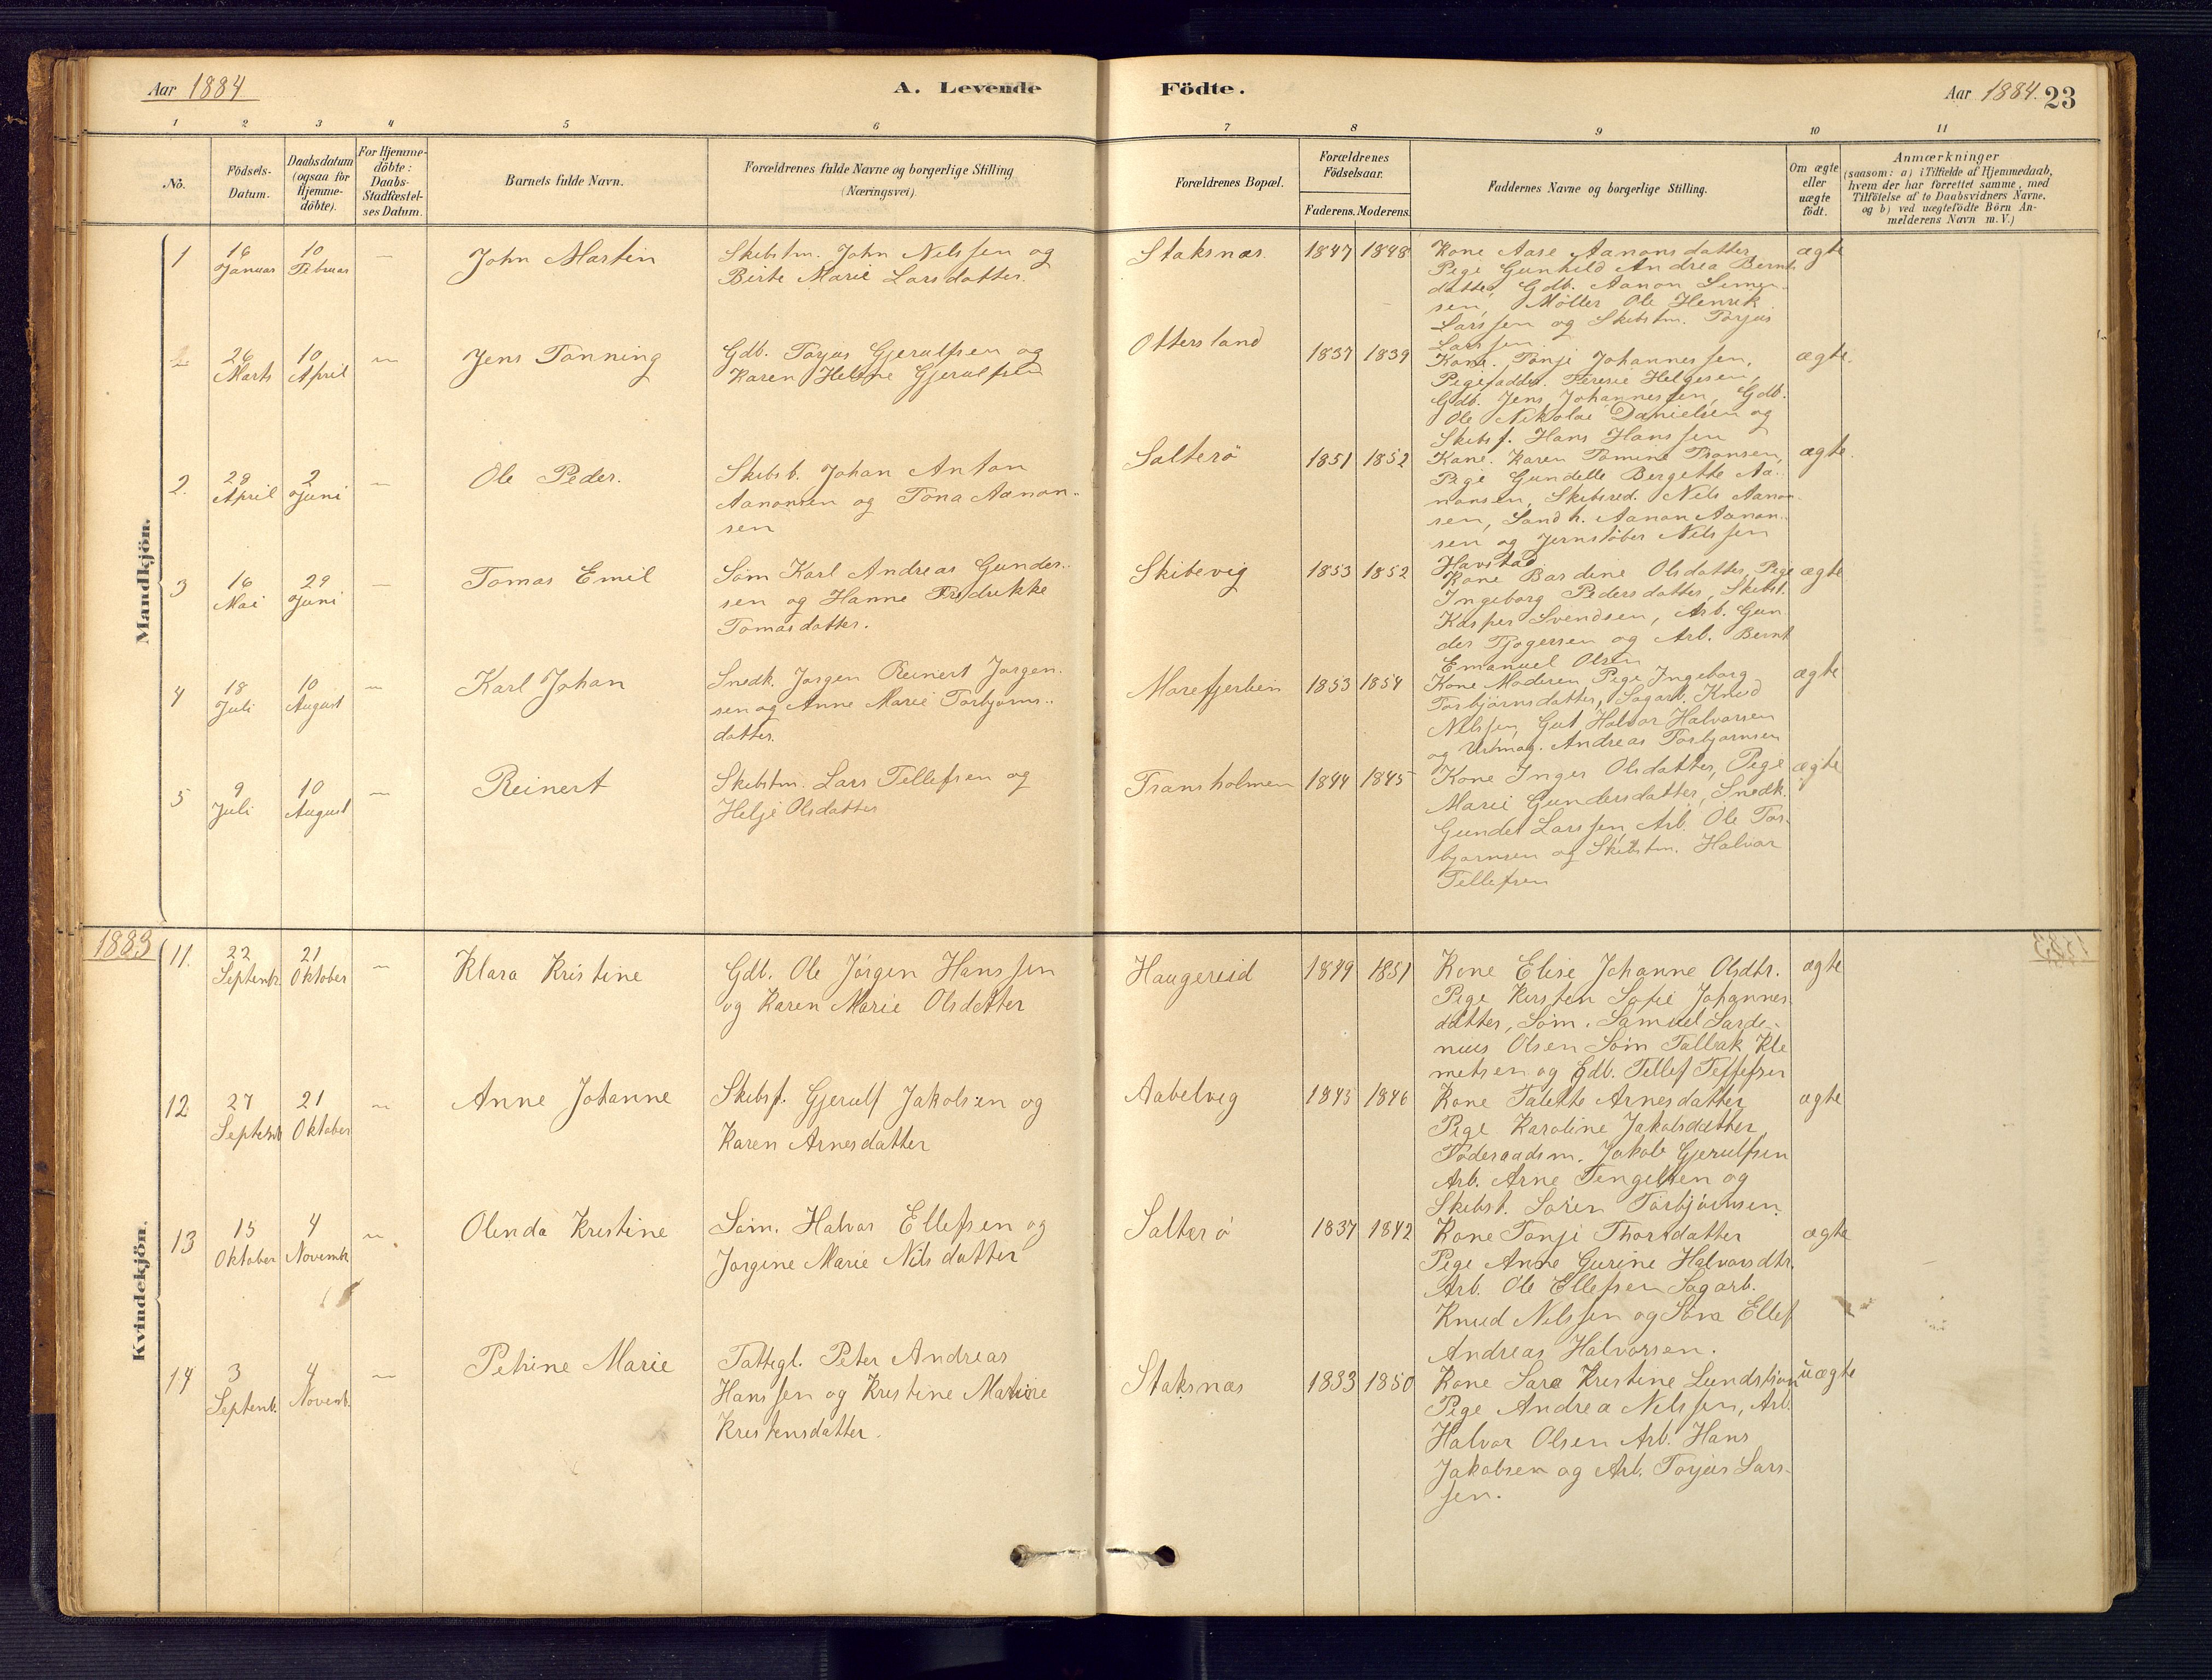 Aar 1884. A. Levende Födte. Aar 1884. 23
1 2 3 4 5 6 7 8 9 10 11
No.
Födsels-
Datum.
Daabsdatum
(ogsaa for
Hjemme-
döbte).
For Hjemme-
döbte:
Daabs-
Stadfæstel-
ses Datum.
Barnets fulde Navn.
Forældrenes fulde Navne og borgerlige Stilling
(Næringsvei).
Forældrenes Bopæl.
Forældrenes
Födselsaar.
Faderens. Moderens.
Faddernes Navne og borgerlige Stilling.
Om ægte
eller
uægte
födt.
Anmærkninger
(saasom: a) i Tilfælde af Hjemmedaab,
hvem der har forrettet samme, med
Tilföielse af to Daabsvidners Navne,
og b) ved uægtefödte Börn An-
melderens Navn m. V.)
Mandkjön.
1
16
Januar
10
Februar
—
John Martin
Skibstm. John Nilssen og
Birte Marie Larsdatter.
Staksnæs.
1847 1848
Kone Aase Aanonsdatter
Pige Gunhild Andrea Bernts
datter, Gdb. Aanon Simon-
sen, Møller Ole Henrik
Larssen og Skibstm. Torjus
Larssen.
ægte
26
Marts
10
April
—
Jens Tønning
Gdb. Torjus Gjerulfsen og
Karen Helene Gjerulfsen
Ottersland
1837 1839
Kone. Tonje Johannessen,
Pigefadder. Teresie Helgesen,
Gdb. Jens Johannessen, Gdb.
Ole Nikolai Danielsen og
Skibsf. Hans Hanssen
ægte.
2.
28
April
2
Juni
—
Ole Peder.
Skibsb. Johan Anton
Aanonsen og Tona Aanon-
sen
Salterö
1851 1852
Kone. Karen Tomine Fransen,
Pige Gundelle Bergette Aa-
nonsen, Skibsred. Nils Aanon-
sen, Landh. Aanon Aanon-
sen og Jernstøber Nilssen
Havstad
ægte.
3
16
Mai
29
Juni
—
Tomas Emil
Søm Karl Andreas Gunder-
sen og Hanne Fredrikke
Tomasdatter.
Skibevig
1853 1852
Kone Bardine Olsdatter, Pige
Ingeborg Pedersdatter, Skibst.
Kasper Svendsen, Arb. Gun
der Tjøgersen og Arb. Bernt
Emanuel Olsen
ægte
4
18
Juli
10
August
—
Karl Johan
Snedk. Jørgen Reinert Jørgen-
sen og Anne Marie Torbjørns-
datter.
Morefjerkein
1853 1854
Kone Moderen Pige Ingeborg
Torbjørnsdatter, Sagarb. Knud
Nilssen, Gut Halvor Halvorsen
og Urmag. Andreas Torbjørnsen
ægte
5
9
Juli
10
August
—
Reinert
Skibstm. Lars Tellefsen og
Helje Olsdatter
Transholmen
1844 1845
Kone Inger Olsdatter, Pige
Marie Gundersdatter, Snedk.
Gunder Larssen, Arb. Ole Tor-
bjørnsen og Skibstm. Halvor
Tellefsen
ægte
1883
Kvindekjön.
11.
22
Septembr
21
Oktober
—
Klara Kristine
Gdb. Ole Jörgen Hanssen
og Karen Marie Olsdatter
Haugereid
1849 1851
Kone Elise Johanne Olsdtr.
Pige Kirsten Sofie Johannes-
datter, Søm. Samuel Sarde-
nius Olsen Søm Tallak Kle
metsen og Gdb. Tellef Tellefsen
ægte
12
27
Septemb
21
Oktober
—
Anne Johanne
Skibsf. Gjerulf Jakobsen og
Karen Arnesdatter
Aabelvig
1845 1846
Kone Talette Arnesdatter
Pige Karoline Jakobsdatter
Föderaadsm. Jakob Gjerulfsen
Arb. Arne Tengelsen og
Skibst. Sören Torbjörnsen.
ægte
13
15
Oktober
4
Novemb
—
Olinda Kristine
Søm. Halvor Ellefsen og
Jørgine Marie Nilsdatter
Salterö
1837 1842
Kone Tonje Thorsdatter
Pige Anne Gurine Halvorsdtr.
Arb. Ole Ellefsen Sagarb.
Knud Nilssen og Søm Ellef
Andreas Halvorsen.
ægte
14
3
Septemb.
4
Novemb.
—
Petrine Marie
Fattegl. Peter Andreas
Hanssen og Kristine Martine
Kristensdatter.
Staksnæs
1833 1850
Kone Sara Kristine Lundström
Pige Andrea Nilssen, Arb.
Halvor Olsen Arb. Hans
Jakobsen og Arb. Torjus Lars-
sen.
uægte